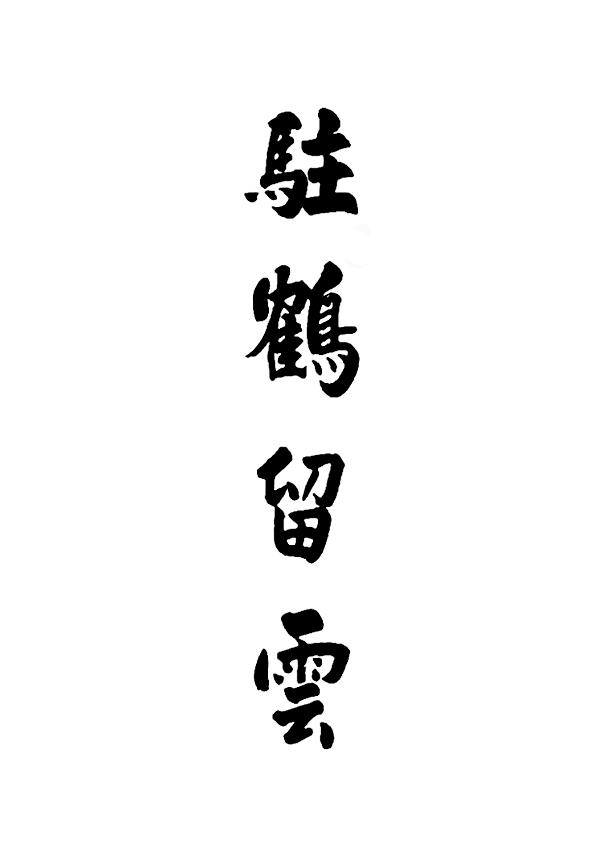 駐鶴留雲